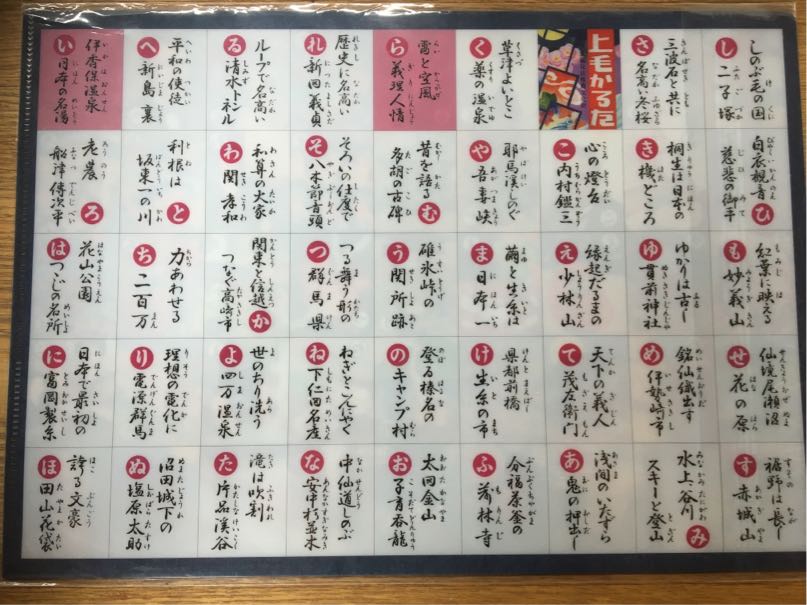 伊香保温泉
い 日本の名湯
老農 ろ
船津傳次平
花山公園
は つつじの名所
日本で最初の
に 富岡製糸
誇る文豪
ほ 田山花袋
平和の使徒
へ 新島襄
利根は と
坂東一の川
力あわせる
ち 二百万
理想の電化に
り 電源群馬
沼田城下の
ぬ 塩原太助
ループで名高い
る 清水トンネル
和算の大家
わ 関孝和
関東と信越 か
つなぐ高崎市
世のちり洗う
よ 四万温泉
滝は吹割
た 片品渓谷
歴史に名高い
れ 新田義貞
そろいの仕度で
そ 八木節音頭
つる舞う形の
つ 群馬県
ねぎとこんにゃく
ね 下仁田名産
中仙道しのぶ
な 安中杉並木
雷と空風
ら 義理人情
昔を語る む
多胡の古碑
碓氷峠の
う 関所跡
登る榛名の
の キャンプ村
太田金山
お 子育呑龍
草津よいとこ
く 薬の温泉
耶馬渓しのぐ
や 吾妻峡
繭と生糸は
ま 日本一
県都前橋
け 生糸の市
分福茶釜の
ふ 茂林寺
上毛かるた
心の燈台
こ 内村鑑三
縁起だるまの
え 少林山
天下の義人
て 茂左衛門
浅間のいたずら
あ 鬼の押出し
三波石と共に
さ 名高い冬桜
桐生は日本の
き 機どころ
ゆかりは古し
ゆ 貫前神社
銘仙織出す
め 伊勢崎市
水上谷川 み
スキーと登山
しのぶ毛の国
し 二子塚
白衣観音 ひ
慈悲の御手
紅葉に映える
も 妙義山
仙境尾瀬沼
せ 花の原
裾野は長し
す 赤城山